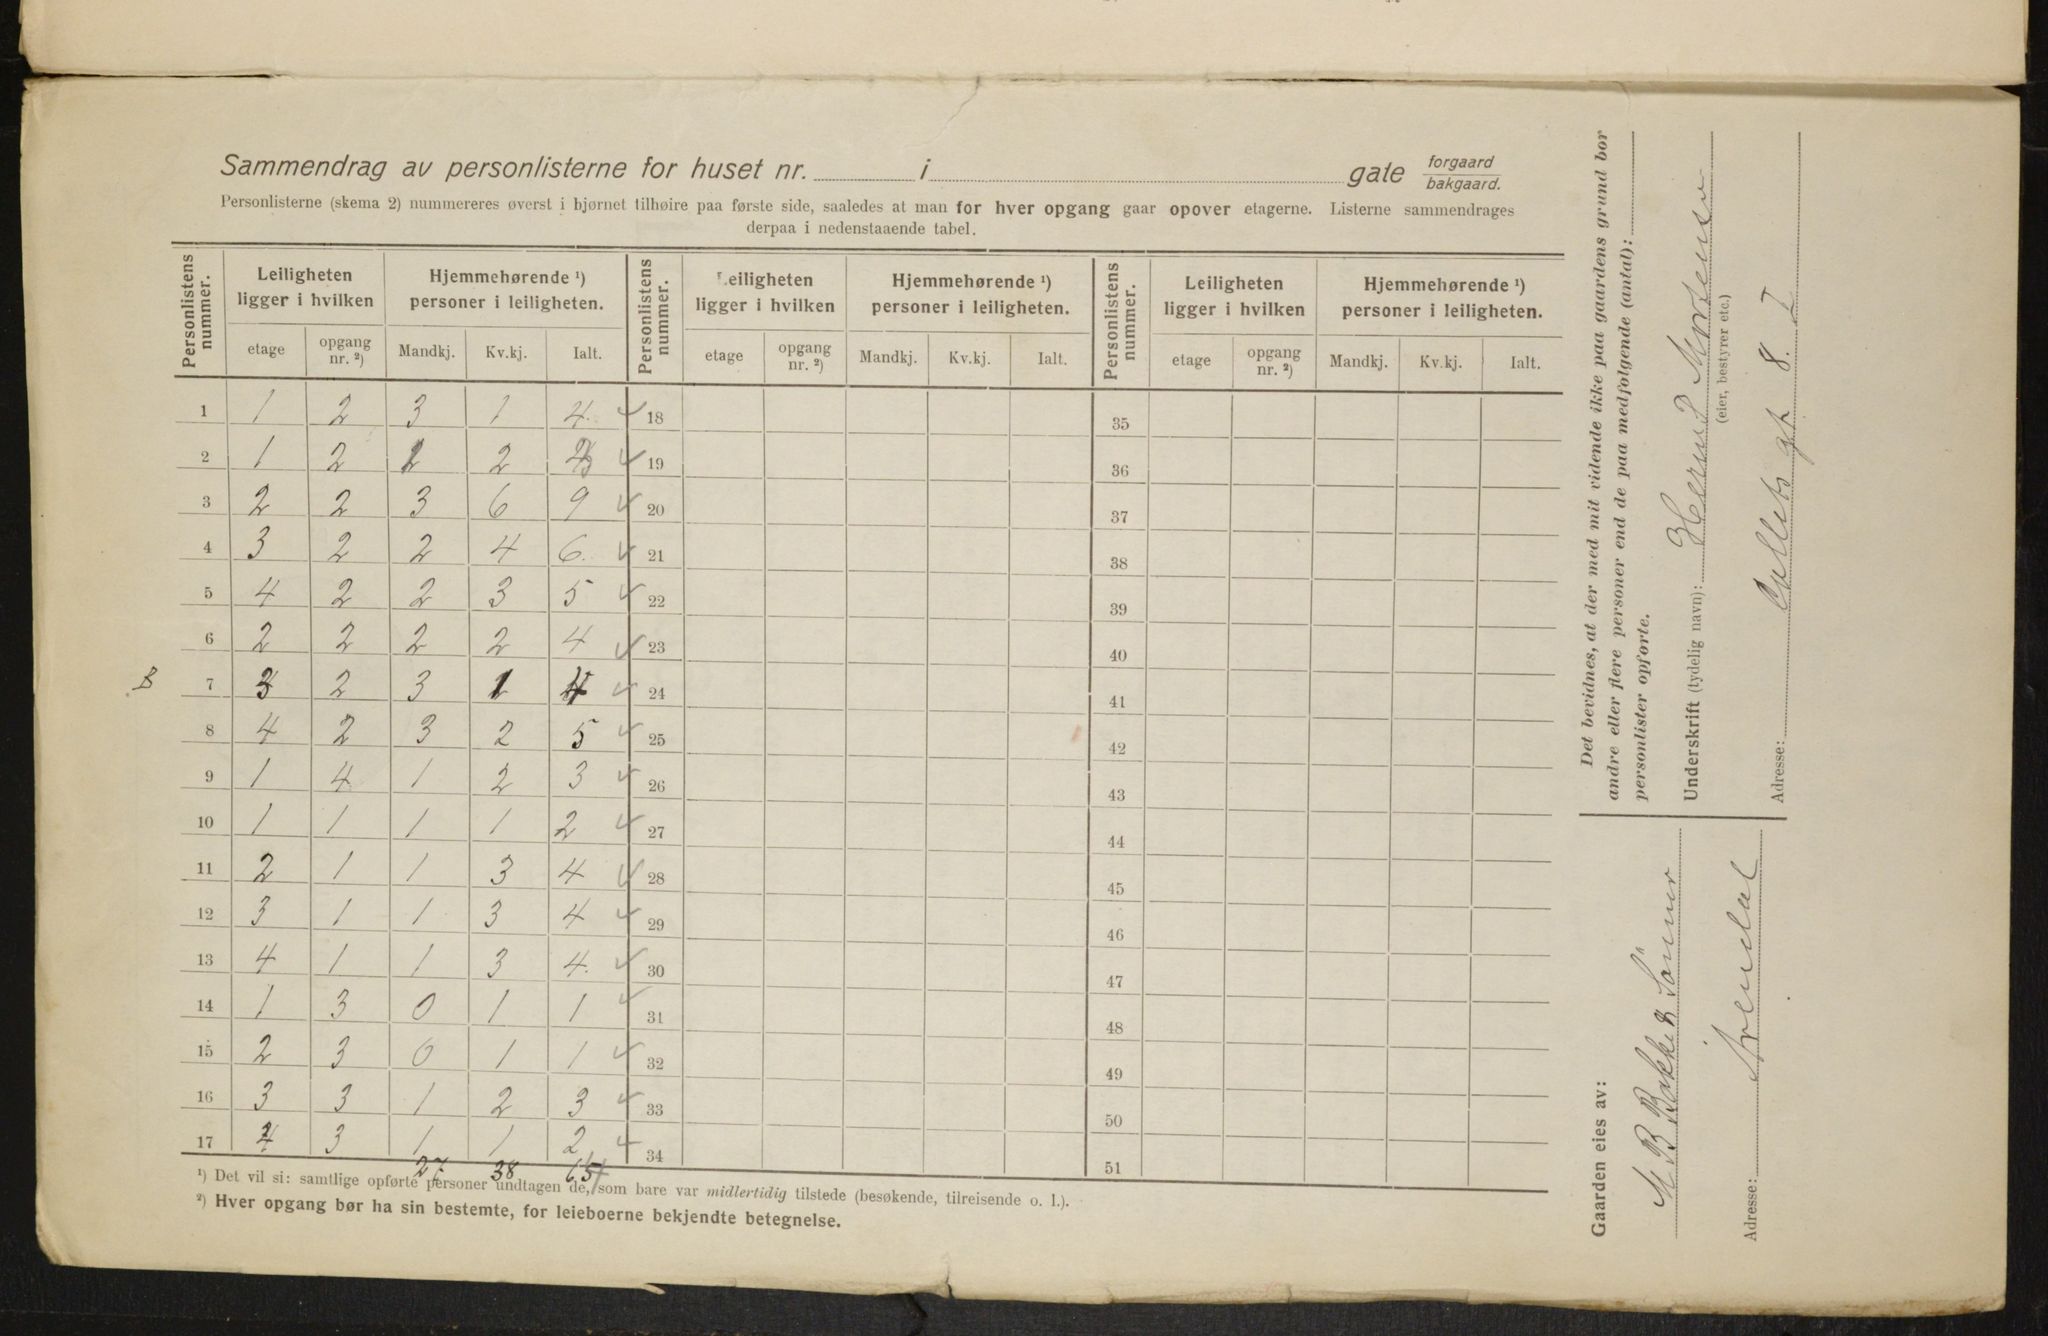 Sammendrag av personlisterne for huset nr. i gate forgaard bakgaard.
Personlisterne (skema 2) nummereres øverst i bjørnet tilhøire paa første side, saaledes at man for hver opgang gaar opover etagerne. Listerne sammendrages
derpaa i nedenstaaende tabel.
Personlistens nummer. Leiligheten ligger i hvilken Hjemmehørende ¹) personer i leiligheten. Personlistens nummer. Leiligheten ligger i hvilken Hjemmehørende ¹) personer i leiligheten. Personlistens nummer. Leiligheten ligger i hvilken Hjemmehørende ¹) personer i leiligheten.
etage opgang nr. ²) Mandkj. Kv.kj. Ialt. etage opgang nr. ²) Mandkj. Kv.kj. Ialt. etage opgang nr. ²) Mandkj. Kv.kj. Ialt.
1 1 2 3 1 4. 18 35
2 1 2 2 19 36
3 2 2 3 6 9 20 37
4 3 2 2 4 6. 21 38
5 4 2 2 3 5 22 39
6 2 2 2 2 4 23 40
7 3 2 3 1 4 24 41
8 4 2 3 2 5 25 42
9 1 4 1 2 3 26 43
10 1 1 1 1 2 27 44
11 2 1 1 3 4 28 45
12 3 1 1 3 4 29 46
13 4 1 1 3 4. 30 47
14 1 3 0 1 1 31 48
15 2 3 0 1 1 32 49
16 3 3 1 2 3 33 50
17 4 3 1 1 2 34 51
27 38 65
¹) Det vil si: samtlige opførte personer undtagen de, som bare var midlertidig tilstede (besøkende, tilreisende o. l.).
²) Hver opgang bør ha sin bestemte, for leieboerne bekjendte betegnelse.
Det bevidnes, at der med mit vidende ikke paa gaardens grund bor
andre eller flere personer end de paa medfølgende (antal):
personlister opførte.
Underskrift (tydelig navn): Mortensen
(eier, bestyrer etc.)
Adresse: Colletts gt 8. I
Gaarden eies av:
M B Bakke & Sönner
Adresse: Arendal